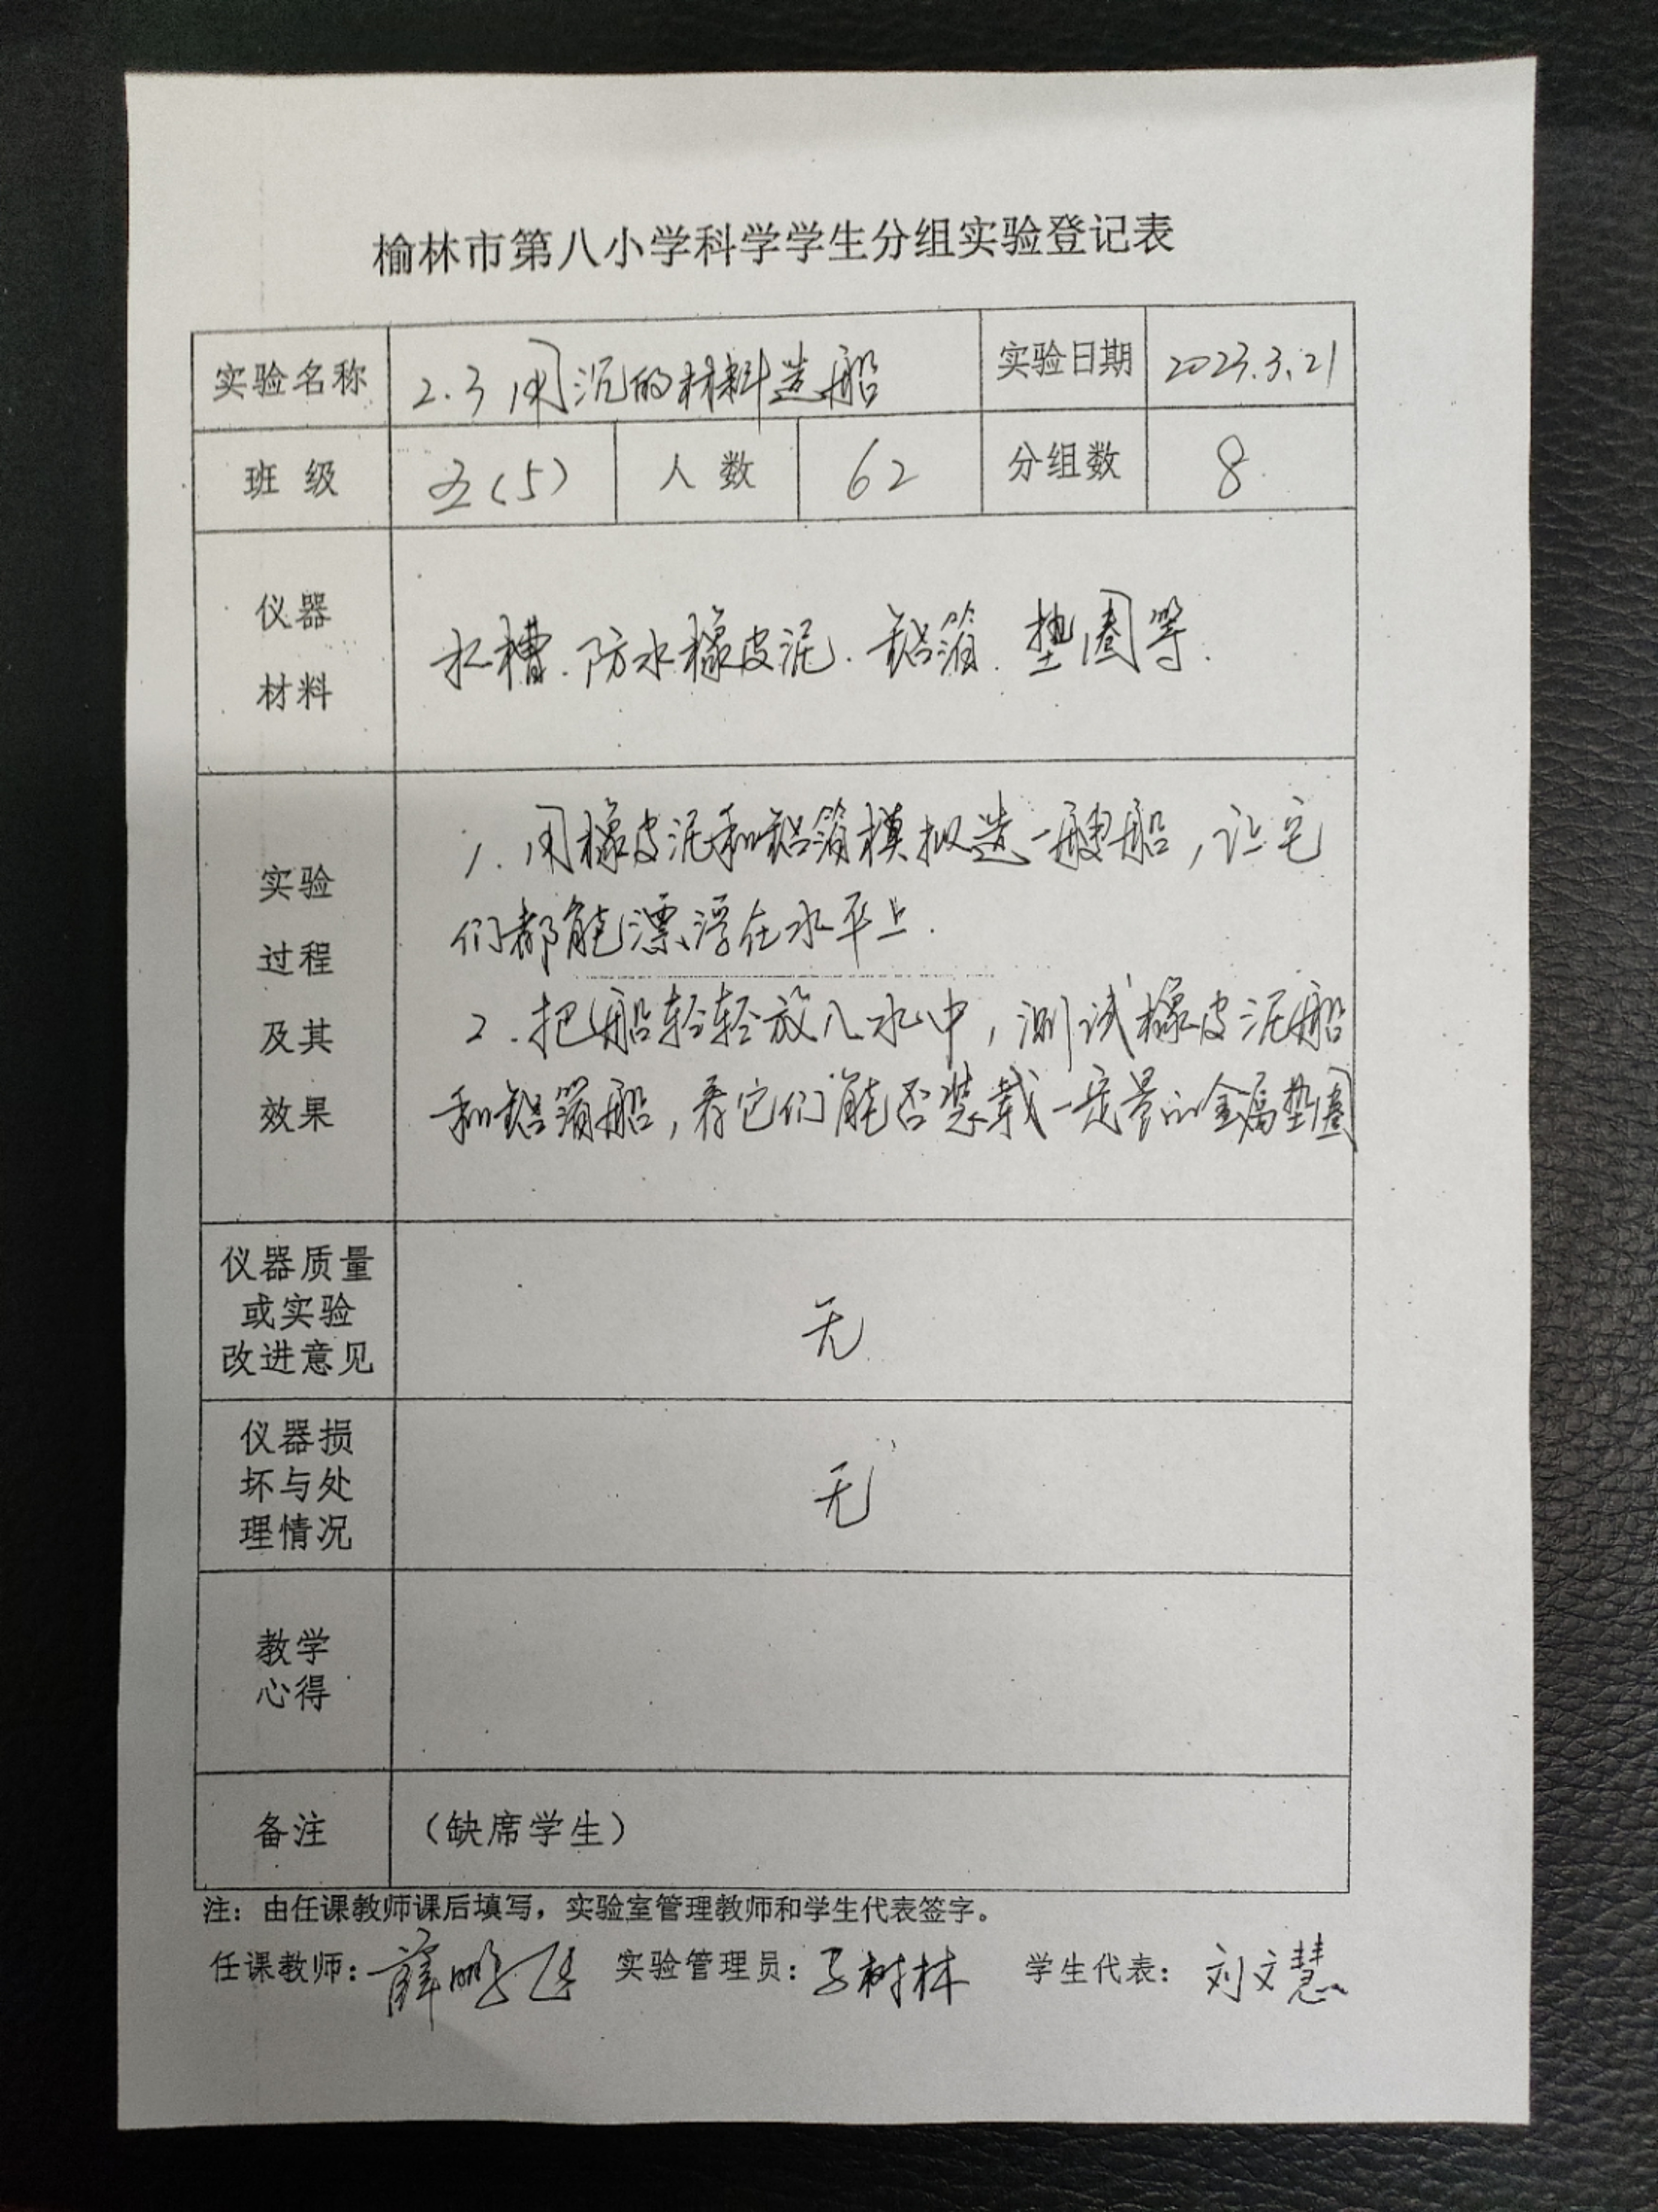 榆林市第八小学科学学生分组实验登记表
实验名称 2.3用沉的材料造船 实验日期 2023.3.21
班级 五(5) 人数 62 分组数 8
仪器
材料
水槽.防水橡皮泥.铝箔.垫圈等.
实验
过程
及其
效果
1.用橡皮泥和铝箔模拟造一艘船,让它
们都能漂浮在水平上.
2.把船轻轻放入水中,测试橡皮泥船
和铝箔船,看它们能否装载一定量的金属垫圈
仪器质量
或实验
改进意见
无
仪器损
坏与处
理情况
无
教学
心得
备注 (缺席学生)
注:由任课教师课后填写,实验室管理教师和学生代表签字。
任课教师:薛鹏 实验管理员:树林 学生代表:刘文慧